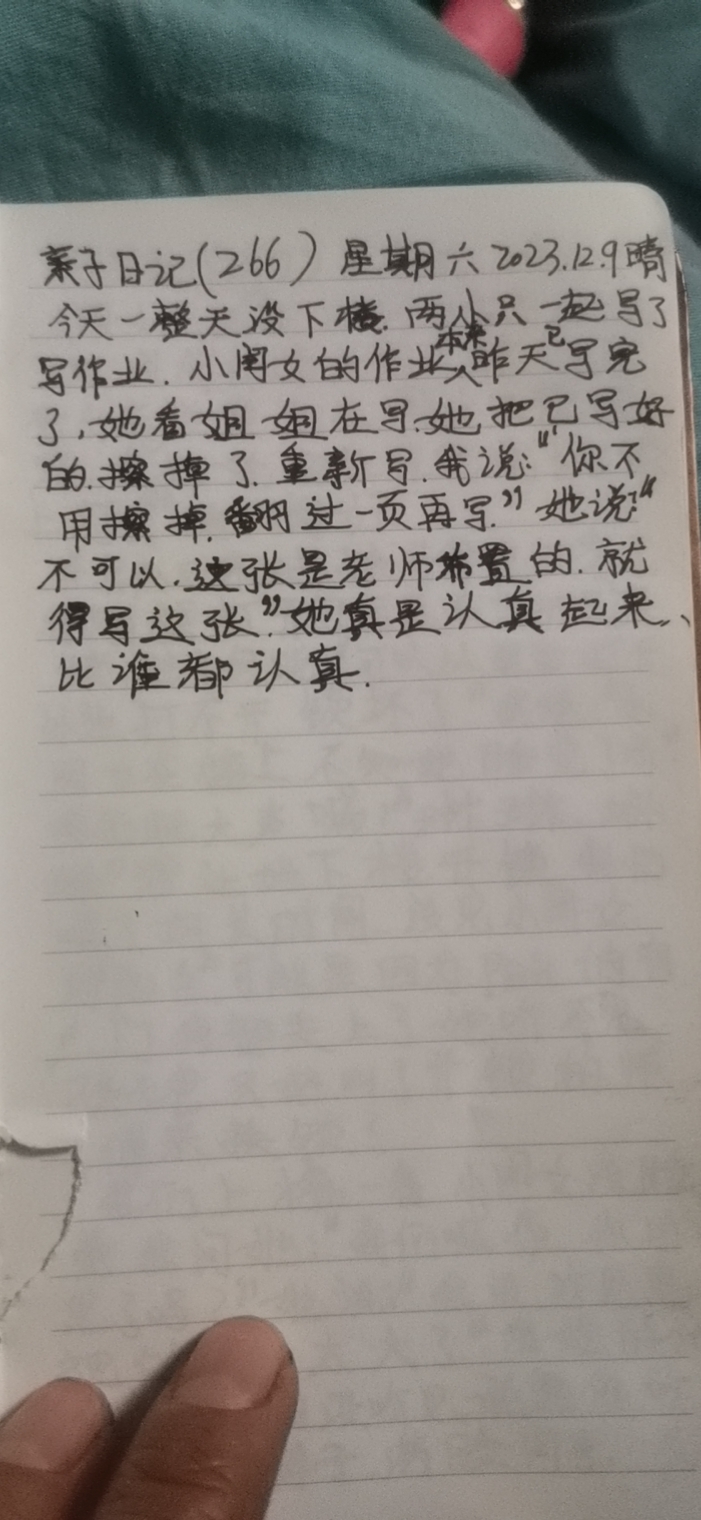 亲子日记(266) 星期六 2023.12.9晴
今天一整天没下楼.两小只一起写了
写作业.小闺女的作业本来昨天已写完
了,她看姐姐在写.她把已写好
的.擦掉了.重新写.我说:“你不
用擦掉.翻过一页再写.”她说:“
不可以.这张是老师布置的.就
得写这张.”她真是认真起来、
比谁都认真.